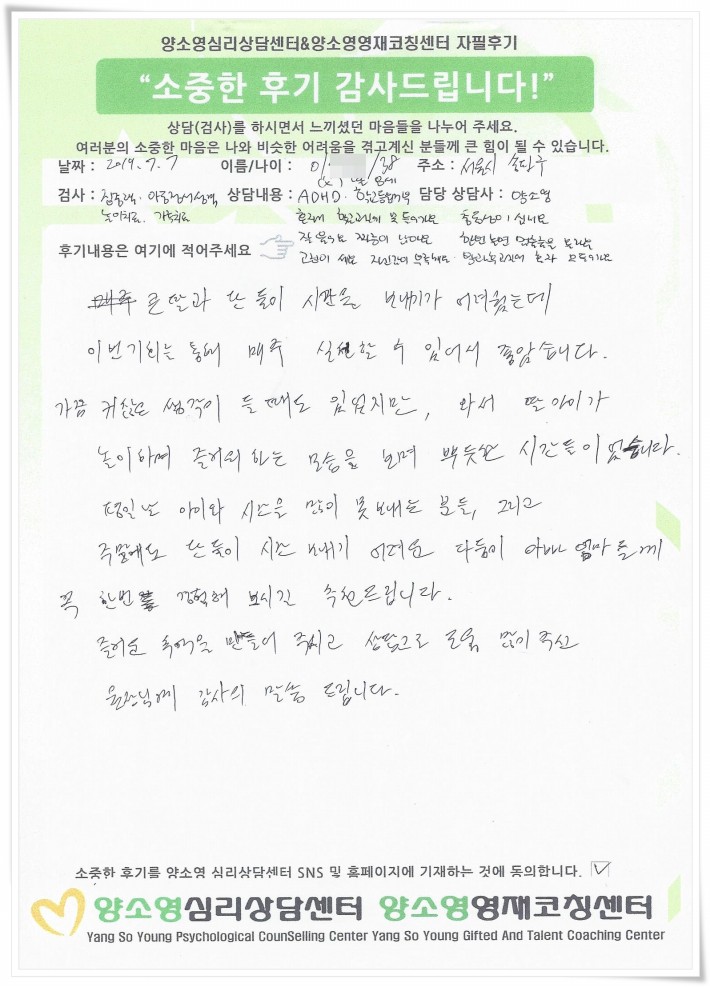 양소영심리상담센터&양소영영재코칭센터 자필후기
“소중한 후기 감사드립니다!”
상담(검사)를 하시면서 느끼셨던 마음들을 나누어 주세요.
여러분의 소중한 마음은 나와 비슷한 어려움을 겪고계신 분들께 큰 힘이 될 수 있습니다.
날짜 : 2019.7.7 이름/나이 : 이 /38 주소 : 서울시
검사 : 상담내용 : ADHD. 담당 상담사 : 양소영
놀이치료. 가족치료
후기내용은 여기에 적어주세요
매주 큰 딸과 단 둘이 시간을 보내기가 어려웠는데
이번기회를 통해 매주 실천할 수 있어서 좋았습니다.
가끔 귀찮은 생각이 들 때도 있었지만, 와서 딸아이가
놀이하며 즐거워 하는 모습을 보며 뿌듯한 시간들이었습니다.
평일 날 아이와 시간을 많이 못 보내는 분들, 그리고
주말에도 단 둘이 시간 보내기 어려운 다둥이 아빠 엄마들께
꼭 한번 경험해 보시길 추천드립니다.
즐거운 추억을 만들어 주시고 상담으로 도움 많이 주신
원장님께 감사의 말씀 드립니다.
소중한 후기를 양소영 심리상담센터 SNS 및 홈페이지에 기재하는 것에 동의합니다.
양소영심리상담센터 양소영영재코칭센터
Yang So Young Psychological CounSelling Center Yang So Young Gifted And Talent Coaching Center